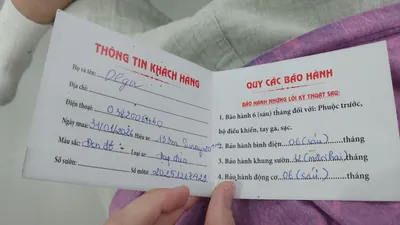 THÔNG TIN KHÁCH HÀNG
Họ và tên: Olga
Địa chỉ:
Điện thoại:
Ngày mua: Hiệu xe:
Màu sắc: Đen đỏ Loại xe:
Số sườn: Số môtơ:
QUY CÁC BẢO HÀNH
BẢO HÀNH NHỮNG LỖI KỸ THUẬT SAU:
1. Bảo hành 6 (sáu) tháng đối với: Phuộc trước,
bộ điều khiển, tay ga, sạc.
2. Bảo hành bình điện 06 (sáu) tháng
3. Bảo hành khung sườn 12 (mười hai) tháng
4. Bảo hành động cơ 06 (sáu) tháng